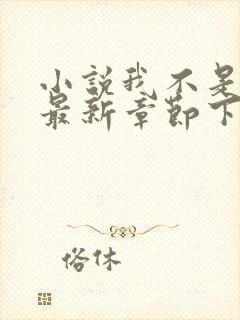 小说我不是
最新章节下
俗休